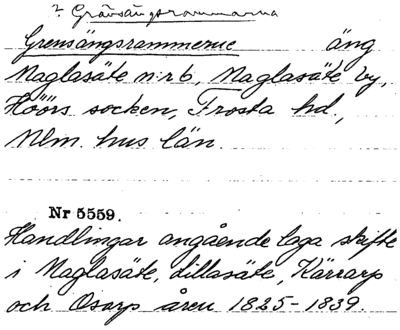 ? Grävsängsrammarna
Grensängsrammerne äng
Maglasäte n:r 6, Maglasäte by,
Höörs socken, Frosta hd.,
Mlm. hus län.
Nr 5559.
Handlingar angående laga skifte
i Maglasäte, Lillasäte, Kärrarp
och Osarp åren 1825-1839.